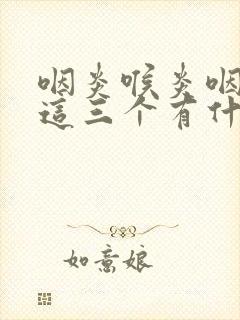 咽炎喉炎咽
這三个有什
如意娘